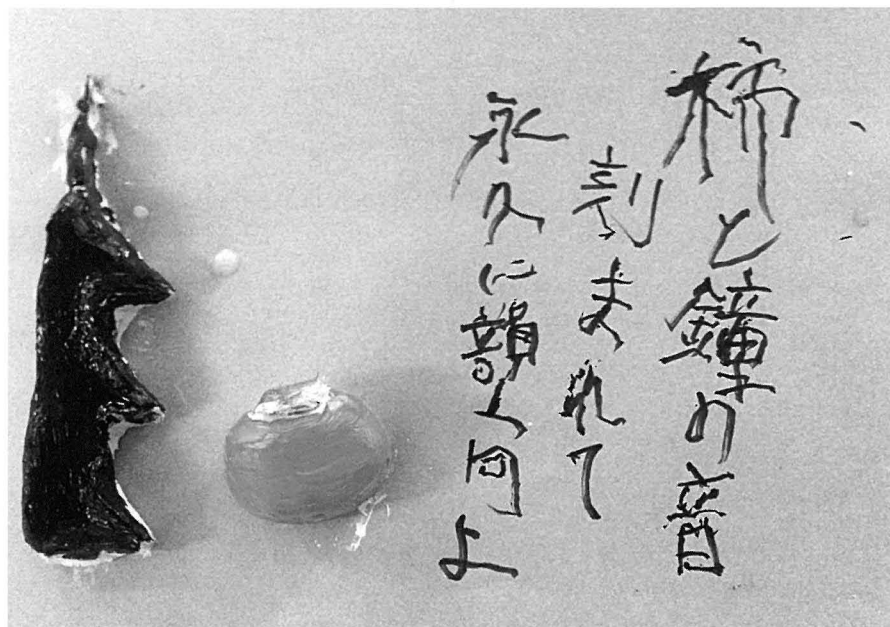 柿と鐘の音
刻まれて
永久に韻く句よ